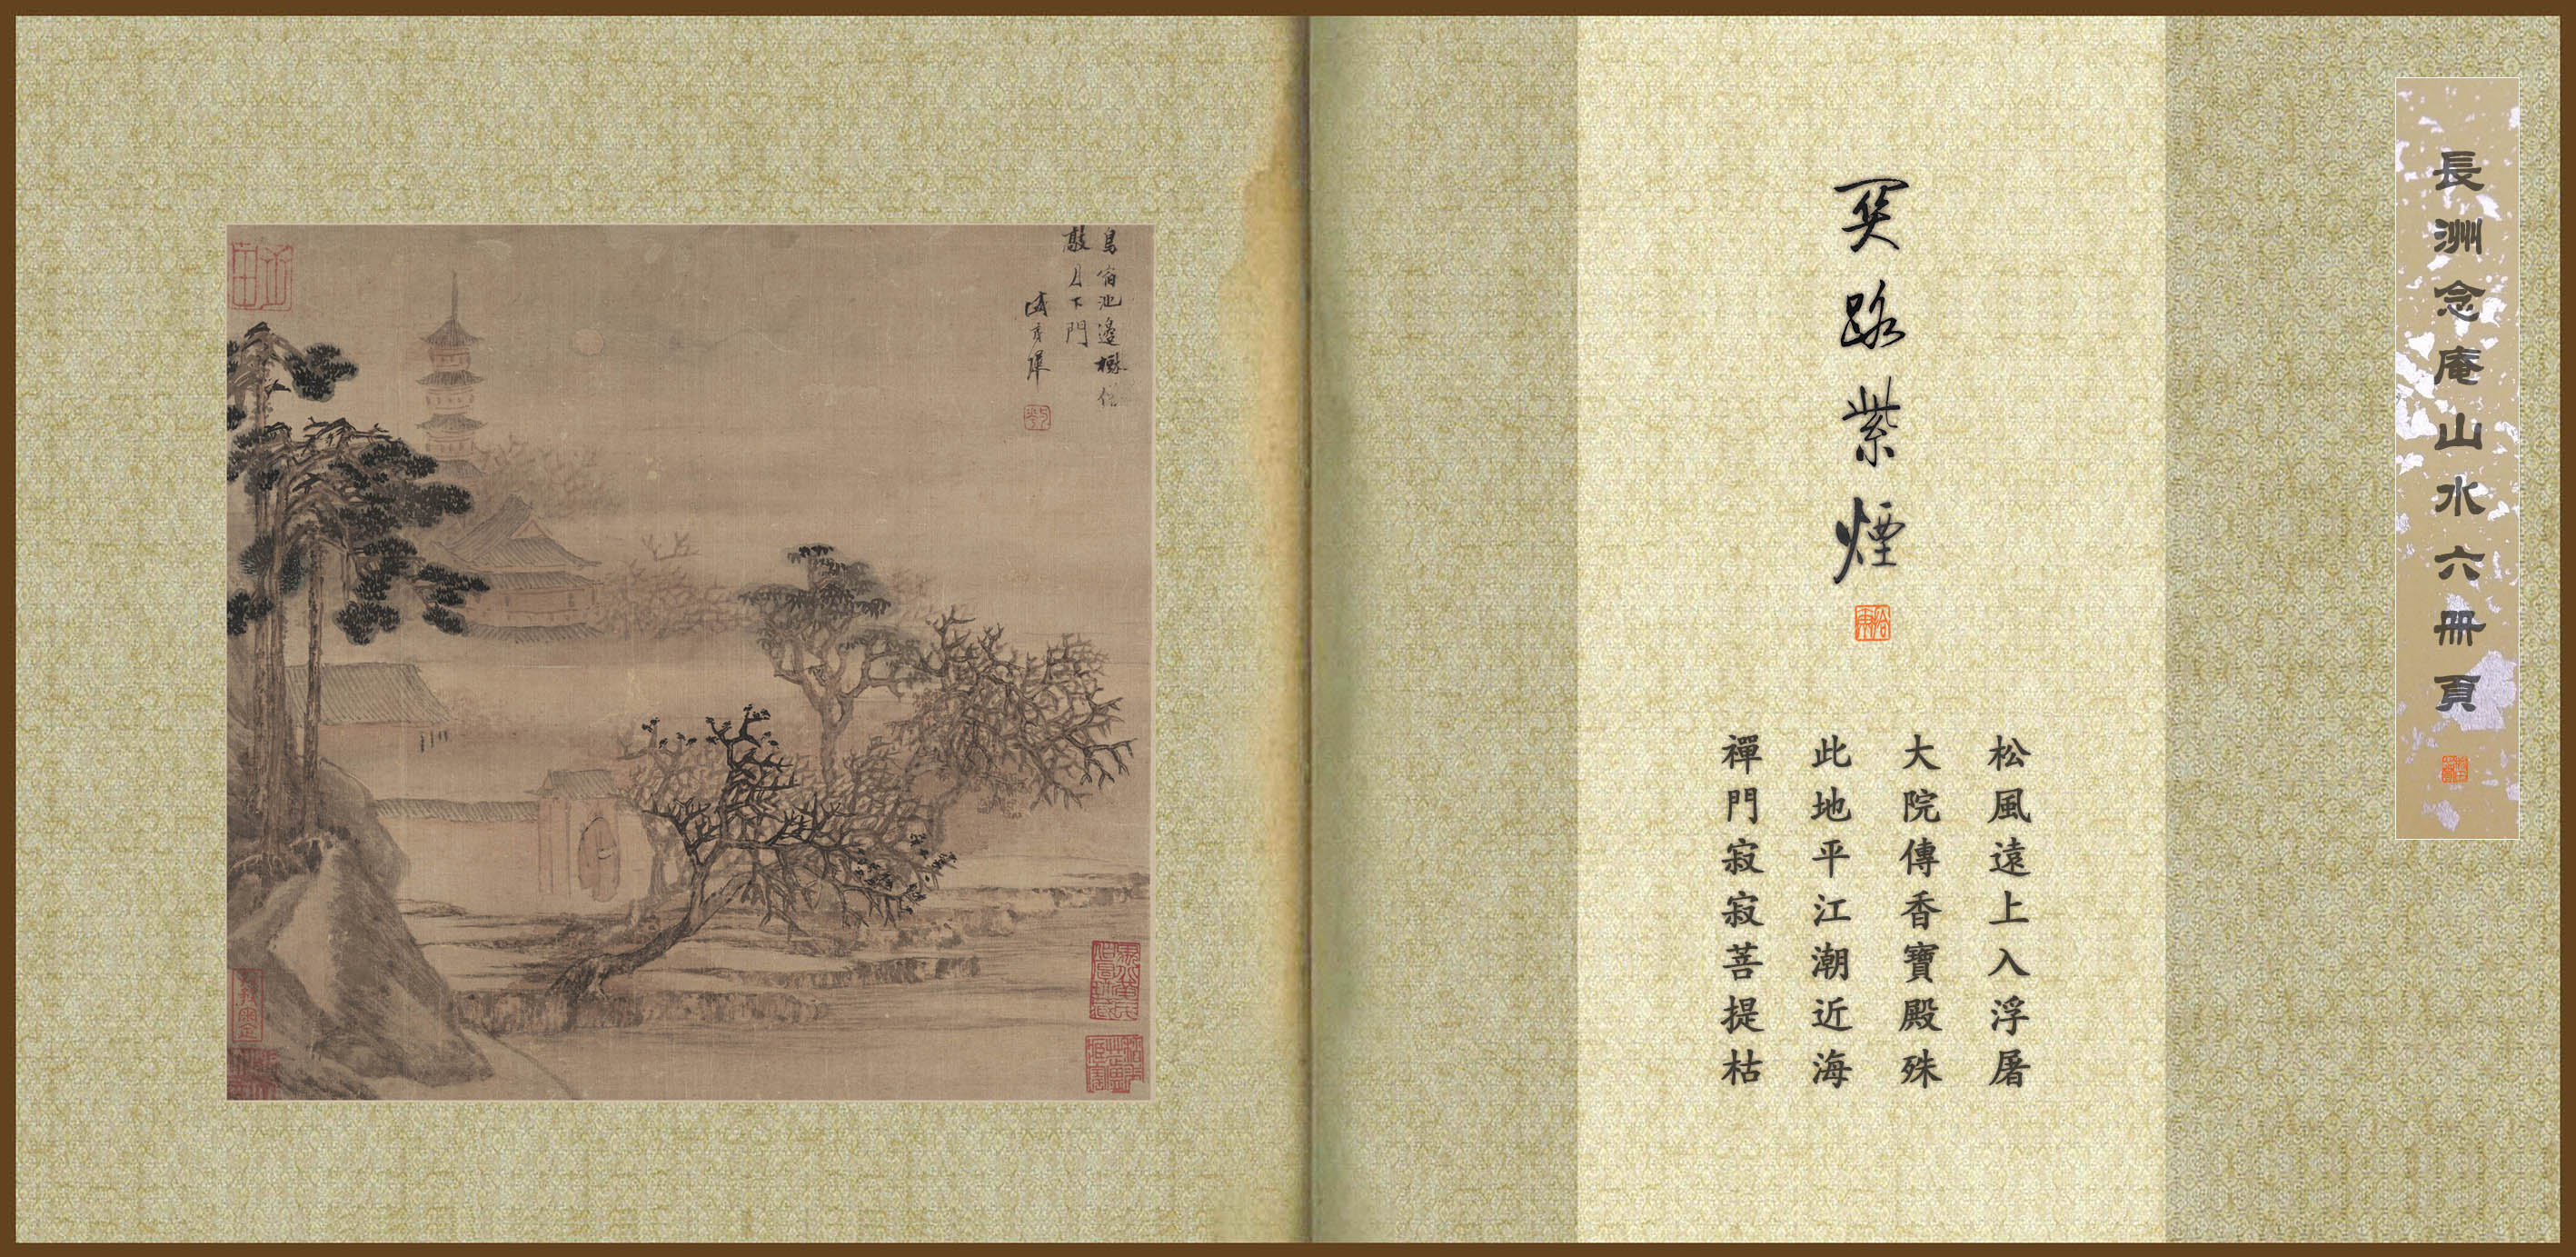 長洲念庵山水六冊頁
路紫煙
松風遠上入浮屠
大院傳香寶殿殊
此地平江潮近海
禪門寂寂菩提枯
鳥宿池邊樹僧
敲月下門